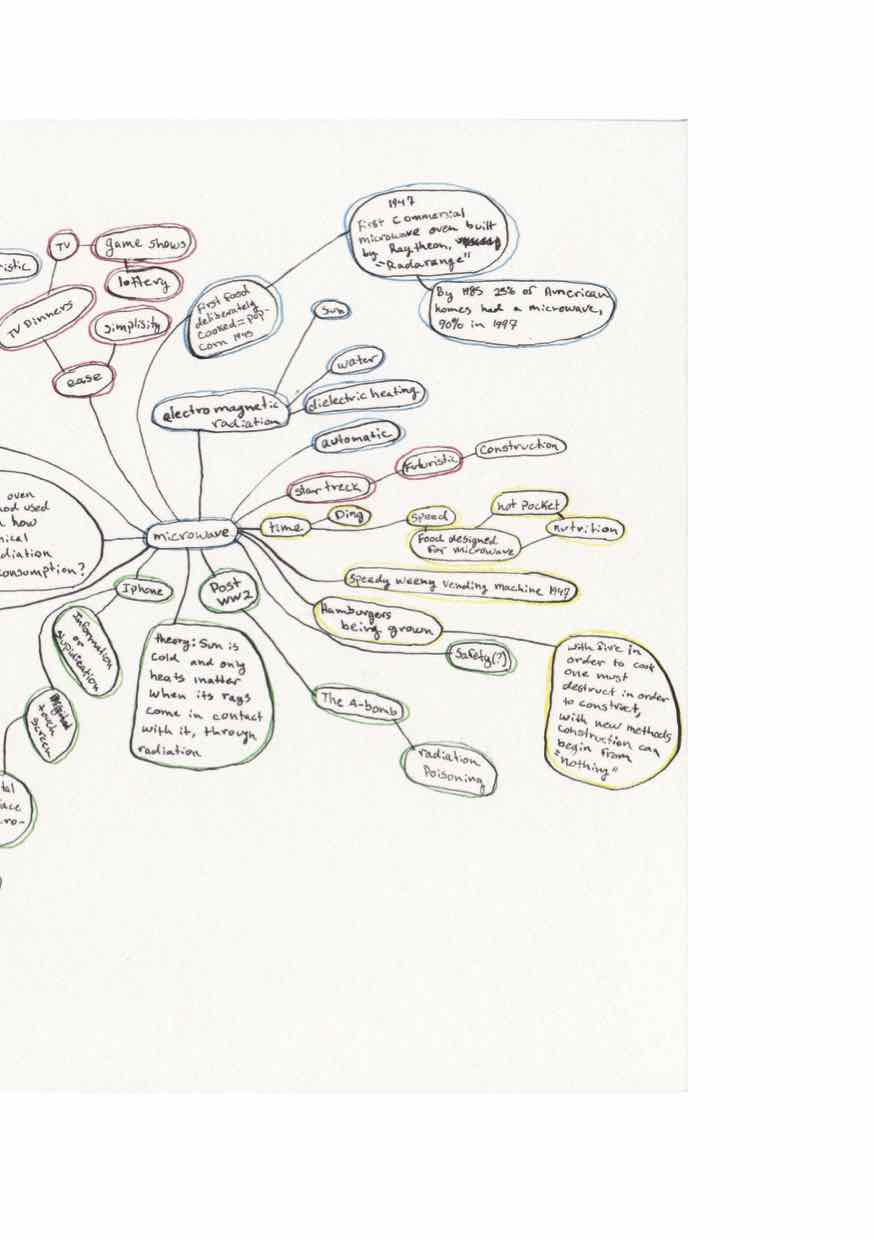 1947
First Commercial
microwave oven built
by Raytheon,
"Radarange"
By 1985 25% of American
homes had a microwave,
90% in 1997
TV
game shows
lottery
istic
TV Dinners
simplisity
ease
First food
deliberately
cooked = pop-
corn 1945
Sun
water
electromagnetic
radiation
dielectric heating
automatic
star treck
Futuristic
Construction
oven
hod used
how
nical
diation
consumption?
microwave
time
Ding
Speed
hot pocket
nutrition
Food designed
for microwave
Iphone
Post
WW2
Speedy weeny vending machine 1947
Hamburgers
being grown
Safety(?)
Information
or
stupidication
theory: Sun is
cold and only
heats matter
when its rays
come in contact
with it, through
radiation
The A-bomb
radiation
Poisoning
with fire in
order to cook
one must
destruct in order
to construct,
with new methods
construction can
begin from
"nothing"
touch
screen
tal
face
cro-